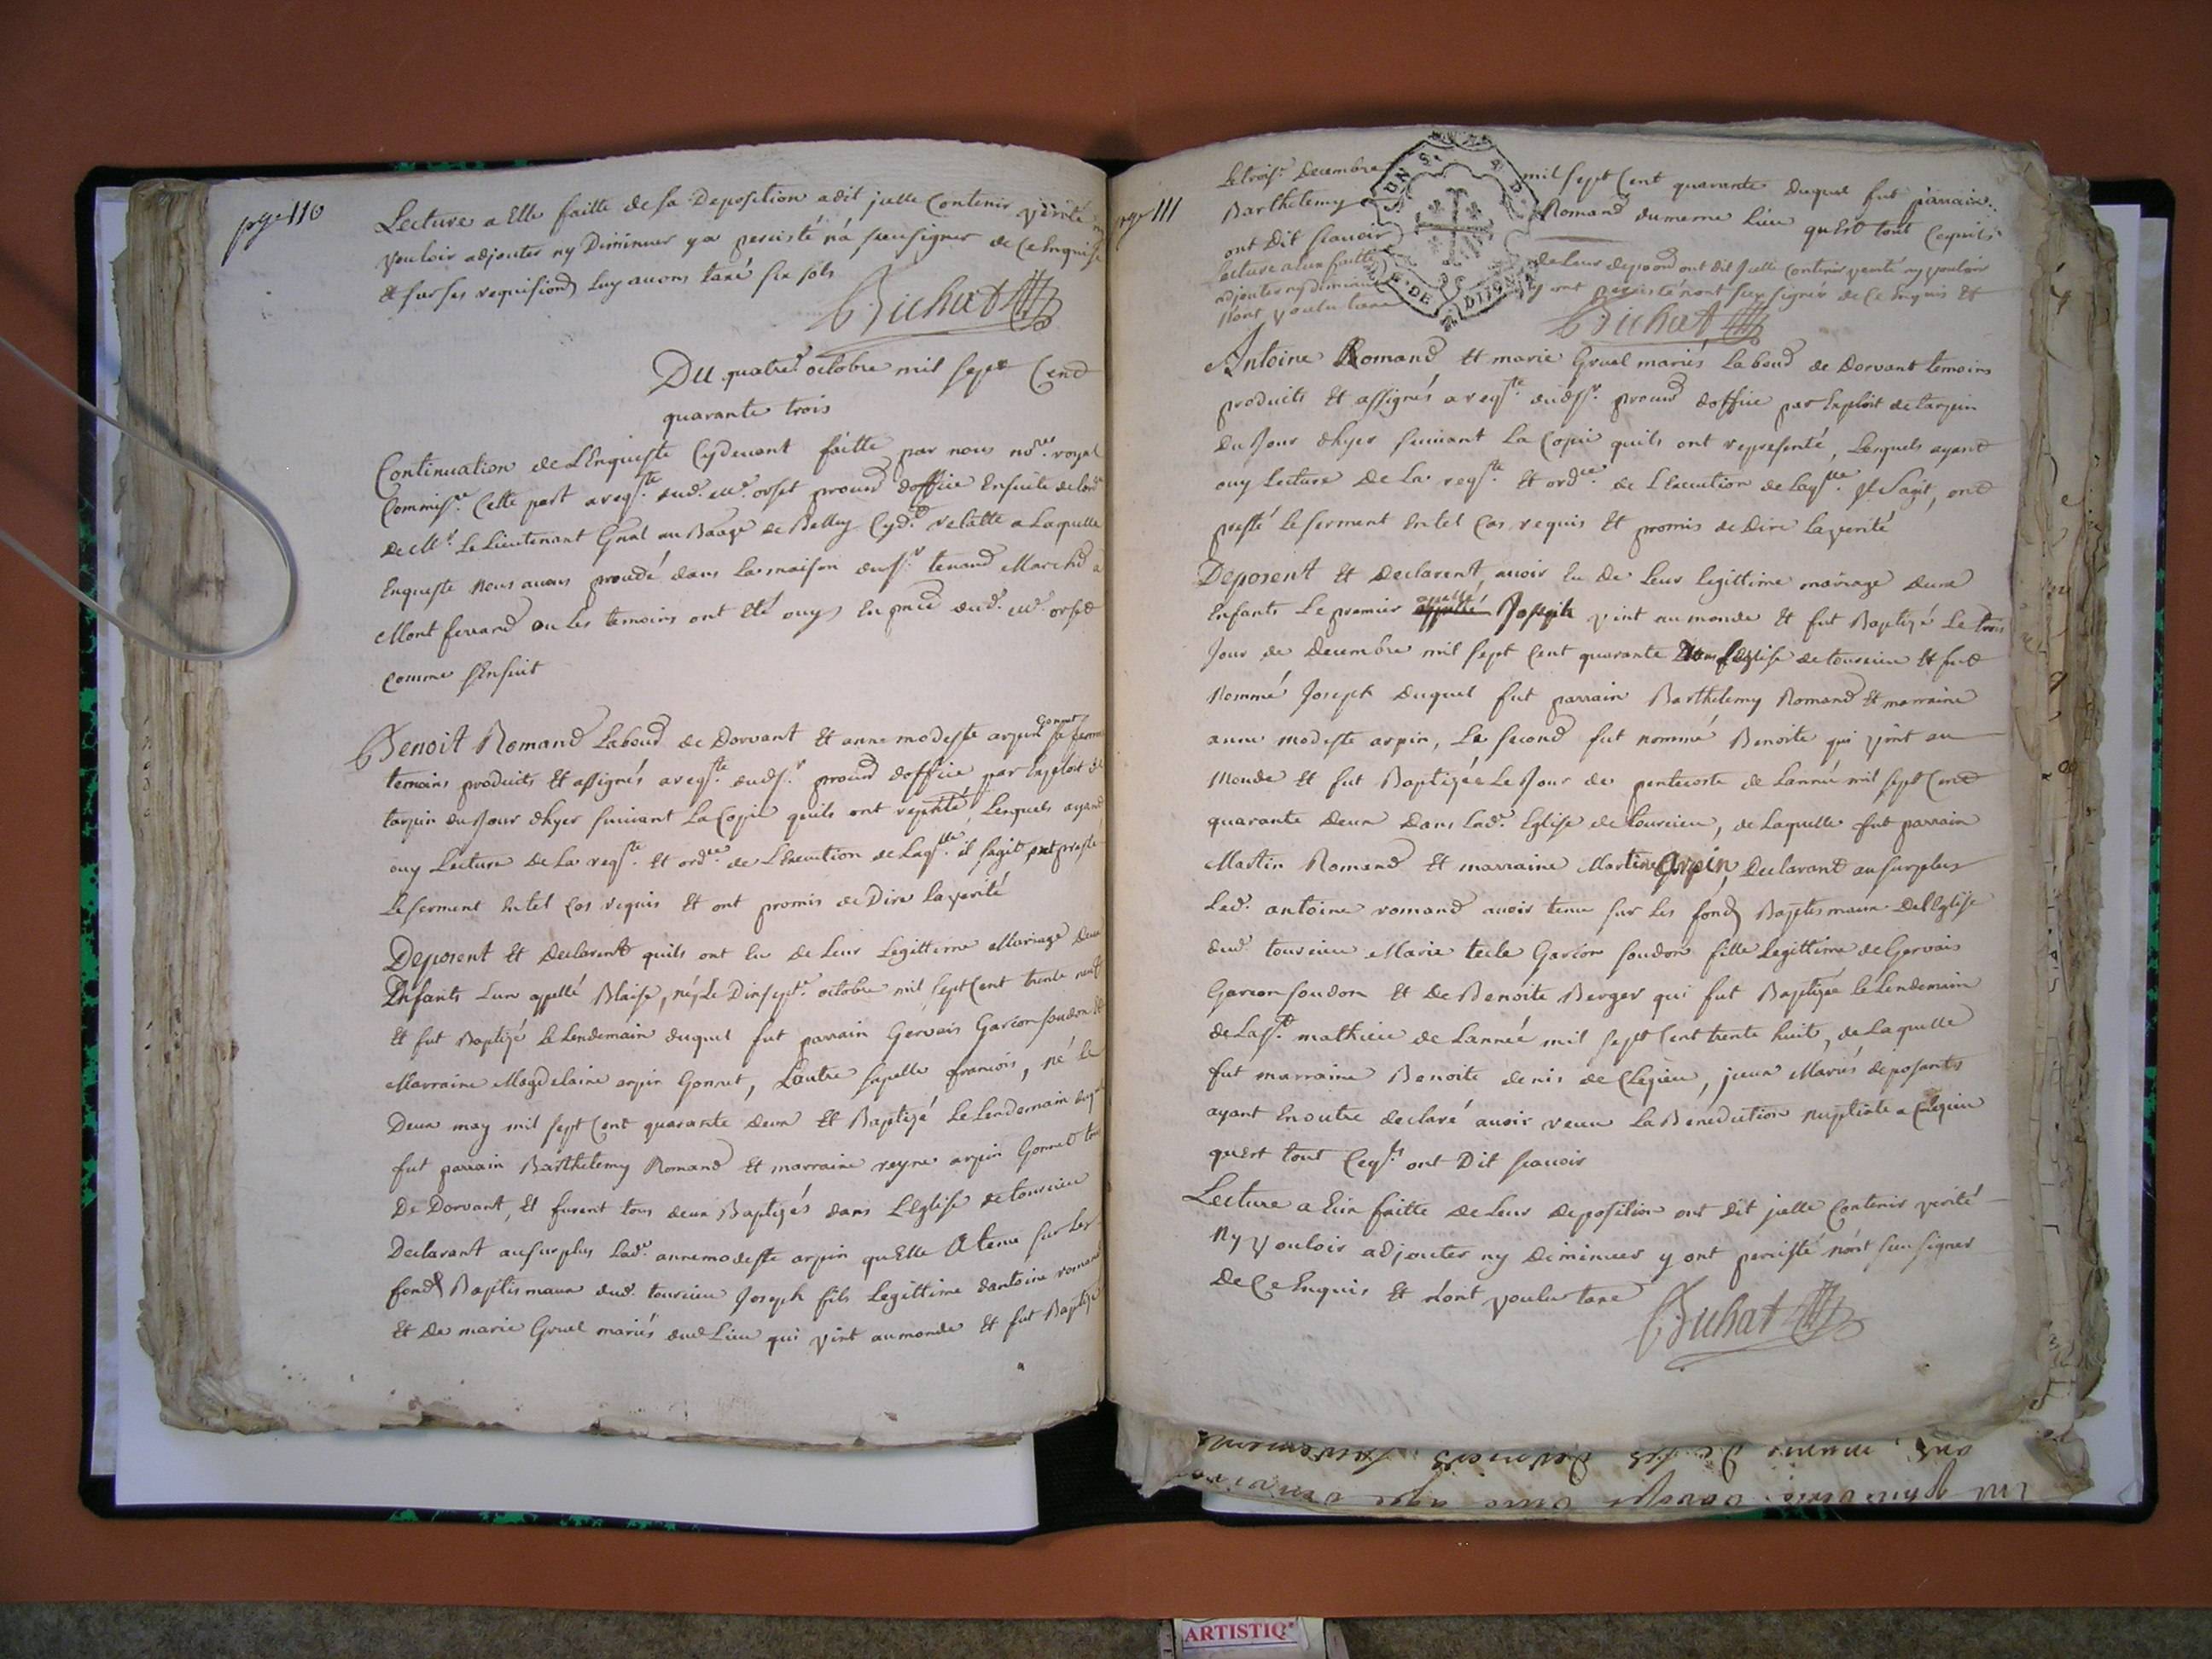 pge 110
Lecture a Elle faitte de sa Deposition a dit jcelle Contenir verité ny
vouloir adjouter ny Diminuer y a percisté n'a sceu signer de ce Enquise
Et sur ses requisiond luy avons taxé six sols
Bichat
Du quatre.e octobre mil sept Cent
quarante trois
Continuation de L'Enqueste Cydevant faitte par nous no.re royal
Commiss.re Cette part a req.te dud. M.e orset procur d'office Ensuite de l'ord.ce
de M.r Le Lieutenant Gnal au Baage de Belley Cyd.t relatte a Laquelle
Enqueste Nous avons procédé dans La maison du s.r tenand Marchd a
Mont ferrand ou les temoins ont Eté ouys En pnce dud. M.e orset
comme s'Ensuit
Benoit Romand Laboud de Dorvant Et anne modeste arpin Gonnet sa femme
temoins produits Et assignés a req.te duds.r procud d'office par Exploit de
tarpin du Jour d'hyer suivant La Copie quils ont repntée, Lesquels ayand
ouy Lecture De La req.te Et ord.ce de L'Execution de Laq.lle il s'agit ont presté
Le serment En tel Cas requis Et ont promis de Dire La verité
Deposent Et Declarent quils ont Eu de Leur Legittime Mariage Deux
Enfants L'un appellé Blaise, né Le Dixsept.e octobre mil sept Cent trente neuf
Et fut Baptizé le Lendemain duquel fut parrain Gervais Garcon soudon Et
Marraine Magdelaine arpin Gonnet, L'autre s'apelle francois, né le
Deux may mil sept Cent quarante deux Et Baptizé Le Lendemain duquel
fut parrain Barthelemy Romand Et marraine reyne arpin Gonnet tous
De Dorvant, Et furent tous deux Baptizés dans L'Eglise de tourcieu
Declarant au surplus Lad.e anne modeste arpin qu'Elle A tenu sur Les
fonds Baptismaux dud. tourcieu Joseph fils Legittime d'antoine romand
Et De marie Gruel mariés dud Lieu qui vint au monde Et fut Baptizé
pge 111
Le trois.e Decembre mil sept Cent quarante duquel fut parrain
Barthelemy Romand du meme Lieu qu'Est tout Cequils
ont Dit scavoir
Lecture a Eux faitte de Leur deposond ont dit Jcelle Contenir verité ny vouloir
adjouter ny diminuer y ont percisté n'ont sceu signer de ce Enquis Et
n'ont voulu taxe
Bichat
Antoine Romand Et marie Gruel mariés Laboud de Dorvant temoins
produits Et assignés a req.te duds.r procud d'office par Exploit de tarpin
Du Jour d'hyer suivant La Copie quils ont representé, Lesquels ayant
ouy Lecture De La req.te Et ord.ce de L'Execution de Laq.lle Jl s'agit, ont
presté Le serment En tel Cas requis Et promis de Dire La verité
Deposent Et Declarent, avoir Eu De Leur legittime mariage deux
Enfants Le premier apellé Joseph vint au monde Et fut Baptizé Le trois
Jour de Decembre mil sept Cent quarante Dans L'Eglise de tourcieu Et fut
Nommé Joseph duquel fut parrain Barthelemy Romand Et marraine
anne modeste arpin, Le second fut nommé Benoite qui vint au
Monde Et fut Baptizée Le Jour de pentecoste de L'année mil sept Cent
quarante Deux Dans Lad.e Eglise de tourcieu, de Laquelle fut parrain
Martin Romand Et marraine Martine Arpin, Declarant au surplus
Led. antoine romand avoir tenu sur Les fonds Baptismaux De L'Eglise
dud tourcieu Marie tecle Garcon soudon fille Legittime de Gervais
Garcon soudon Et De Benoite Berger qui fut Baptizée le Lendemain
de La s.t mathieu de L'année mil sept Cent trente huit, de Laquelle
fut marraine Benoite denis de Clezieu, jceux Mariés deposants
ayant En outre declaré avoir receu La Benediction nuptiale a Clezieu
qu'Est tout Ceq.ls ont Dit scavoir
Lecture a Eux faitte de Leur deposition ont dit jcelle Contenir verité
Ny vouloir adjouter ny diminuer y ont percisté n'ont sceu signer
De Ce Enquis Et n'ont voulu taxe
Bichat
ARTISTIQ